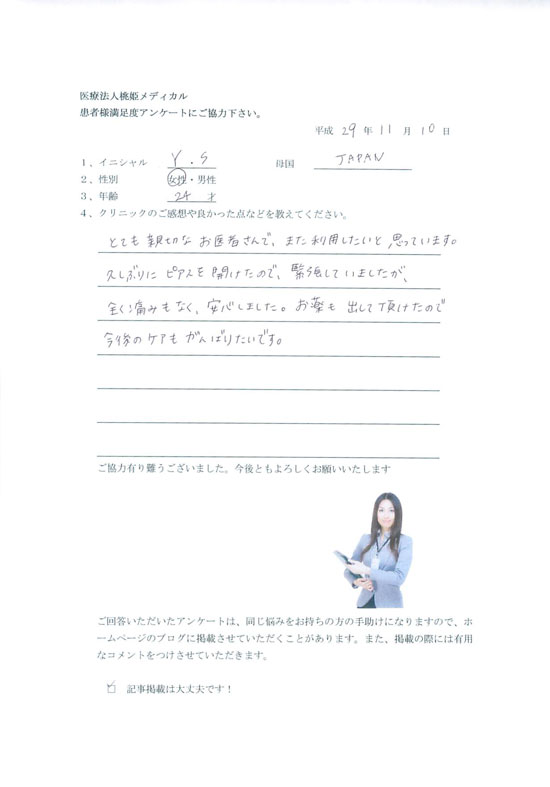 医療法人桃姫メディカル
患者様満足度アンケートにご協力下さい。
平成 29 年 11 月 10 日
1、イニシャル Y.S 母国 JAPAN
2、性別 女性・男性
3、年齢 24 才
4、クリニックのご感想や良かった点などを教えてください。
とても親切なお医者さんで、また利用したいと思っています。
久しぶりにピアスを開けたので、緊張していましたが、
全く痛みもなく、安心しました。お薬も出して頂けたので
今後のケアもがんばりたいです。
ご協力有り難うございました。今後ともよろしくお願いいたします
ご回答いただいたアンケートは、同じ悩みをお持ちの方の手助けになりますので、ホ
ームページのブログに掲載させていただくことがあります。また、掲載の際には有用
なコメントをつけさせていただきます。
☑ 記事掲載は大丈夫です！